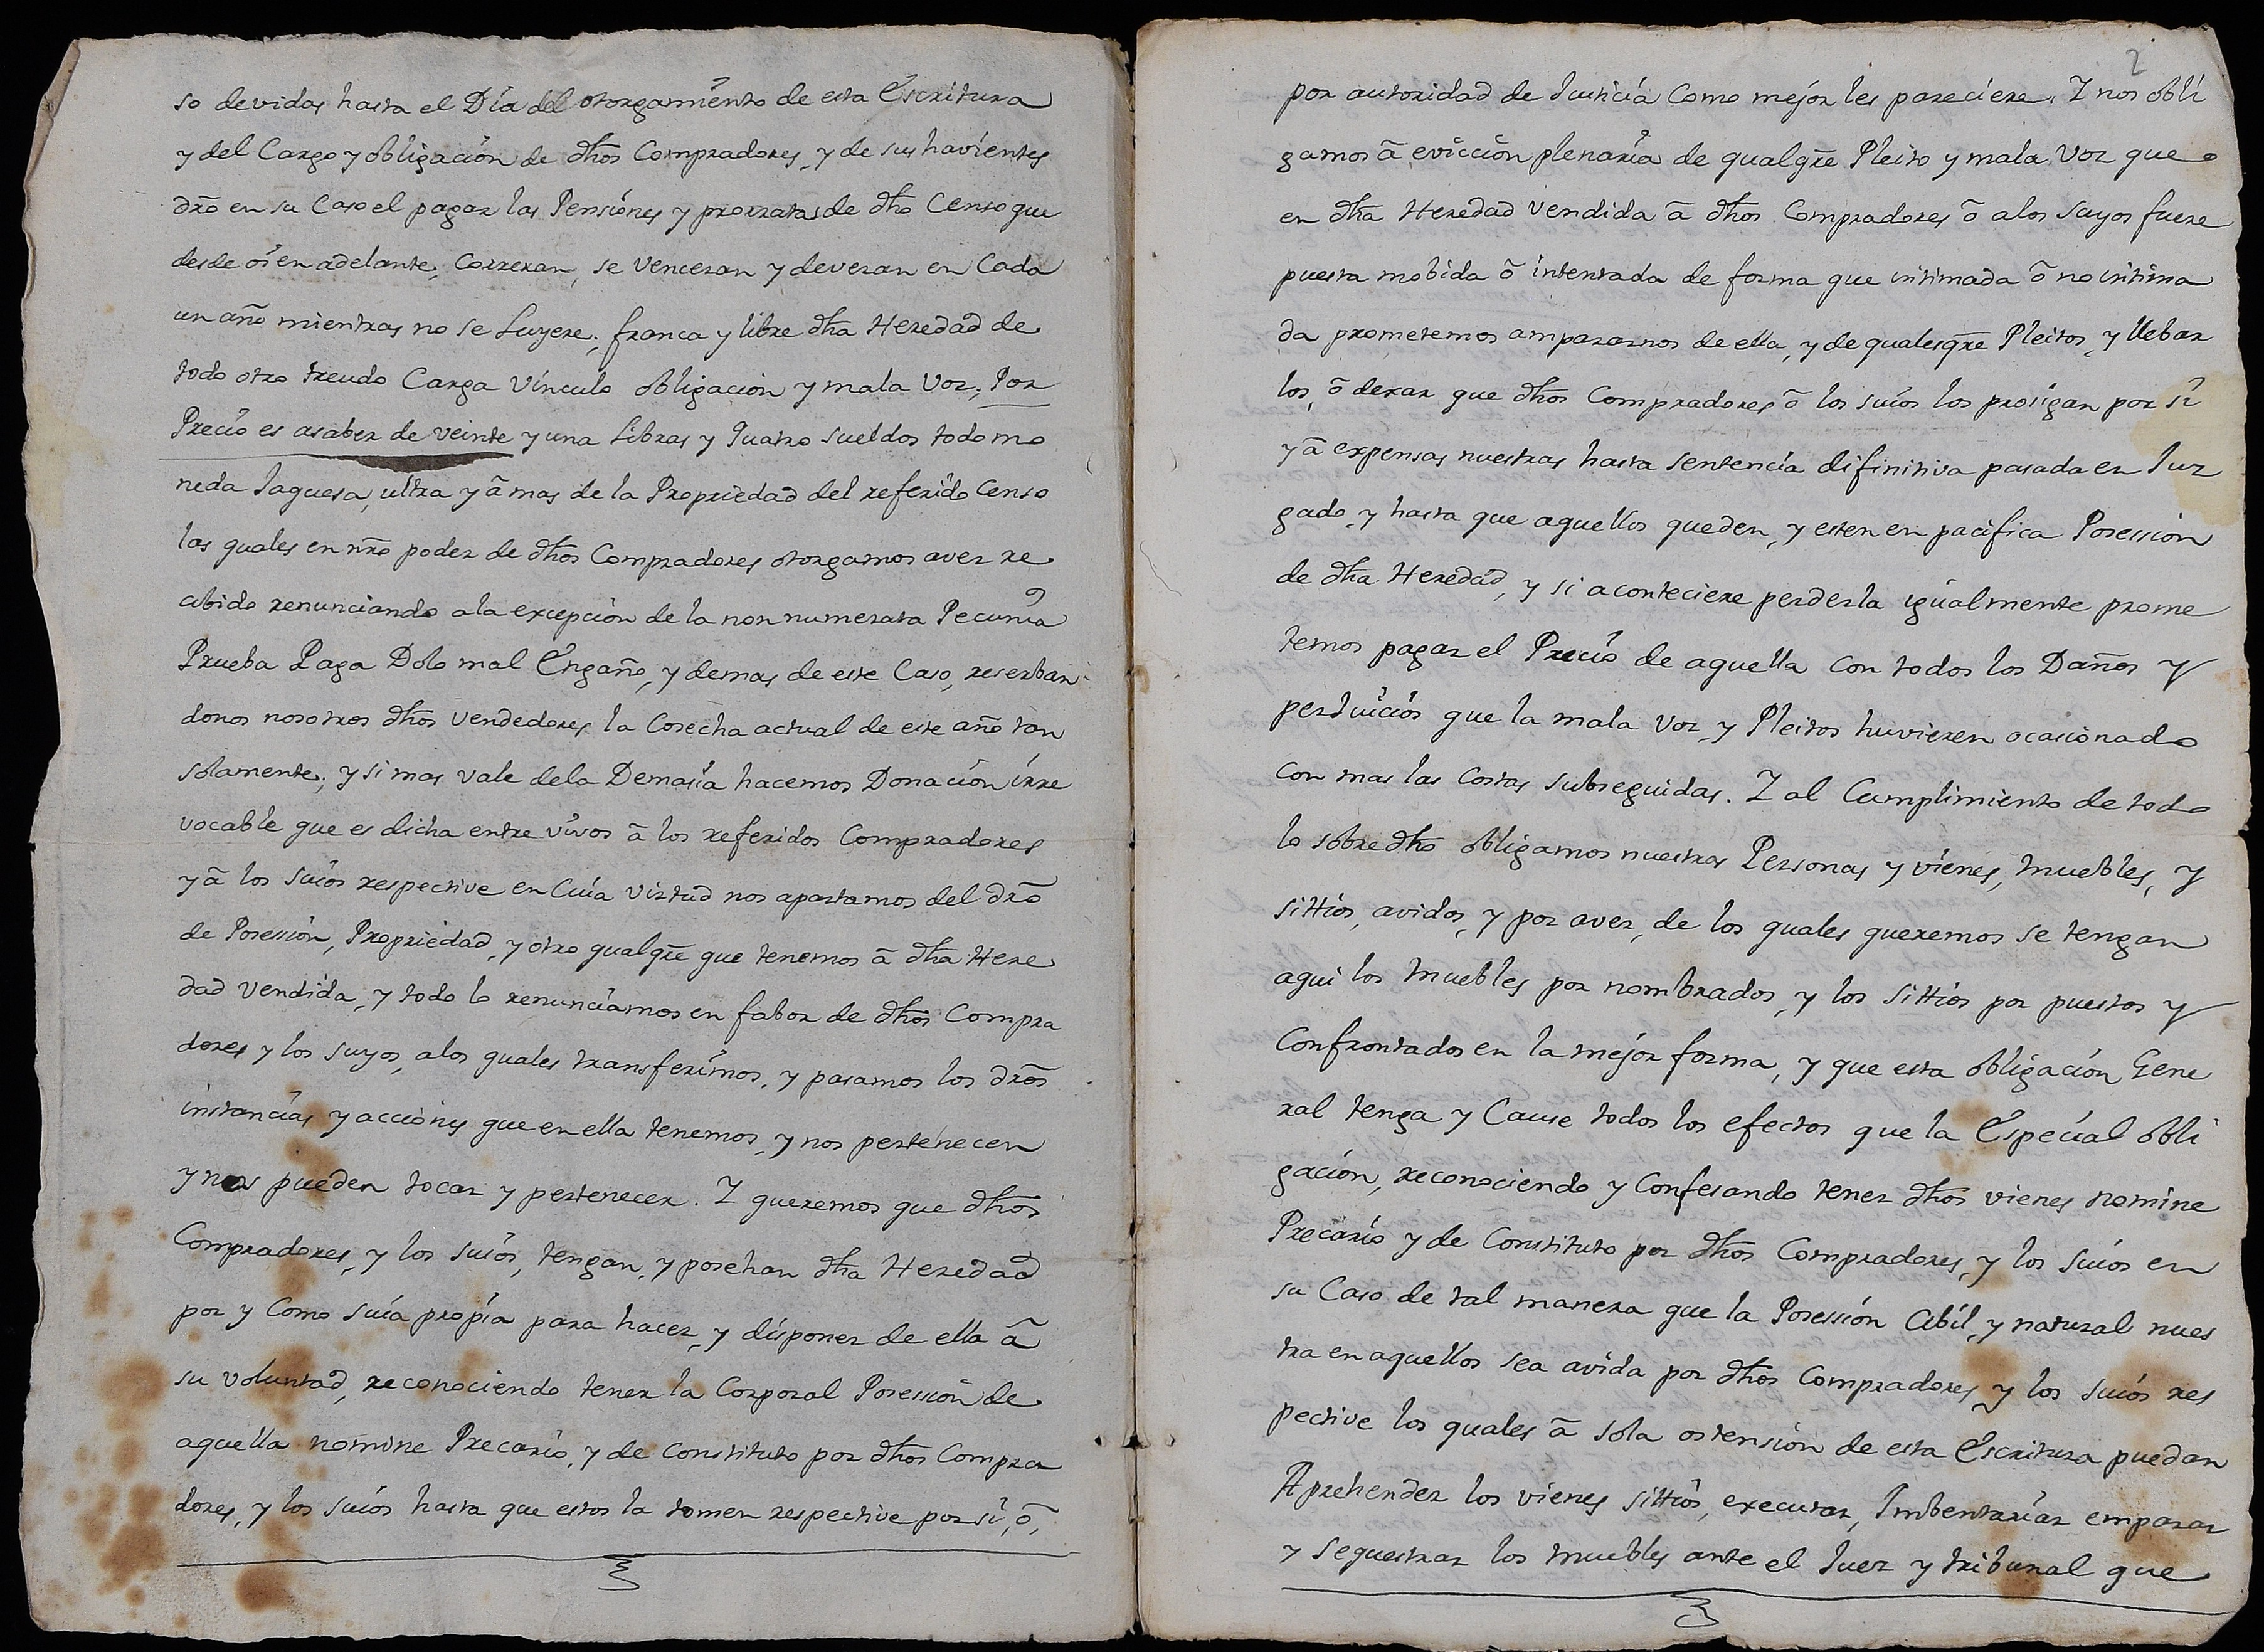 so devidas hasta el Día del otorgamiento de esta Escritura
y del Cargo y obligación de dhos Compradores, y de sus havientes
dro en su Caso el pagar las Pensiones y prorratas de dho Censo que
desde oi en adelante, correran, se venceran y deveran en Cada
un año mientras no se Luyere; franca y libre dha Heredad de
todo otro treudo Carga Vínculo obligación y mala voz; Por
Precio es asaber de veinte y una Libras y Quatro sueldos todo mo
neda Jaquesa, ultra y â mas de la Propriedad del referido Censo
las quales en nro poder de dhos Compradores otorgamos aver re
cibido renunciando a la excepción de la non numerata Pecunia
Prueba Paga Dolo mal Engaño, y demas de este Caso, reserban
donos nosotros dhos Vendedores la Cosecha actual de este año tan
solamente; y si mas vale dela Demasía hacemos Donación irre
vocable que es dicha entre vivos â los referidos Compradores
y â los suios respective en Cuia virtud nos apartamos del dro
de Posession, Propriedad, y otro qualqre que tenemos â dha Here
dad Vendida, y todo lo renunciamos en fabor de dhos Compra
dores y los suyos, alos quales transferimos, y pasamos los dros
instancias y acciones que en ella tenemos, y nos pertenecen
y nos pueden tocar y pertenecer. Y queremos que dhos
Compradores, y los suios, tengan, y posehan dha Heredad
por y Como suia propia para hacer, y disponer de ella â
su voluntad, reconociendo tener la Corporal Posession de
aquella nomine Precario, y de Constituto por dhos Compra
dores, y los suios hasta que estos la tomen respective por si, ô,
2
por autoridad de Justicia Como mejor les pareciere. Y nos obli
gamos â evicción plenaria de qualqre Pleito y mala voz que
en dha Heredad vendida â dhos Compradores ô alos suyos fuere
puesta mobida ô intentada de forma que intimada ô no intima
da prometemos ampararnos de ella, y de qualesqre Pleitos, y llebar
los, ô dexar que dhos Compradores ô los suios los prosigan por si
y â expensas nuestras hasta sentencia difinitiva pasada en Juz
gado, y hasta que aquellos queden, y esten en pacifica Posession
de dha Heredad, y si aconteciere perderla igualmente prome
temos pagar el Precio de aquella con todos los Daños y
perjuicios que la mala voz, y Pleitos huvieren ocasionado
con mas las Costas subseguidas. Y al Cumplimiento de todo
lo sobredho obligamos nuestras Personas y vienes, muebles, y
sittios, avidos, y por aver, de los quales queremos se tengan
aqui los muebles por nombrados, y los sittios por puestos y
Confrontados en la mejor forma, y que esta obligación Gene
ral tenga y Cause todos los efectos que la Especial obli
gación, reconociendo y Confesando tener dhos vienes nomine
Precario y de Constituto por dhos Compradores, y los suios en
su Caso de tal manera que la Posession Cibil, y natural nues
tra en aquellos sea avida por dhos Compradores y los suios res
pective los quales â sola ostension de esta Escritura puedan
Aprehender los vienes sittios, executar, Imbentariar emparar
y sequestrar los muebles ante el Juez y tribunal que